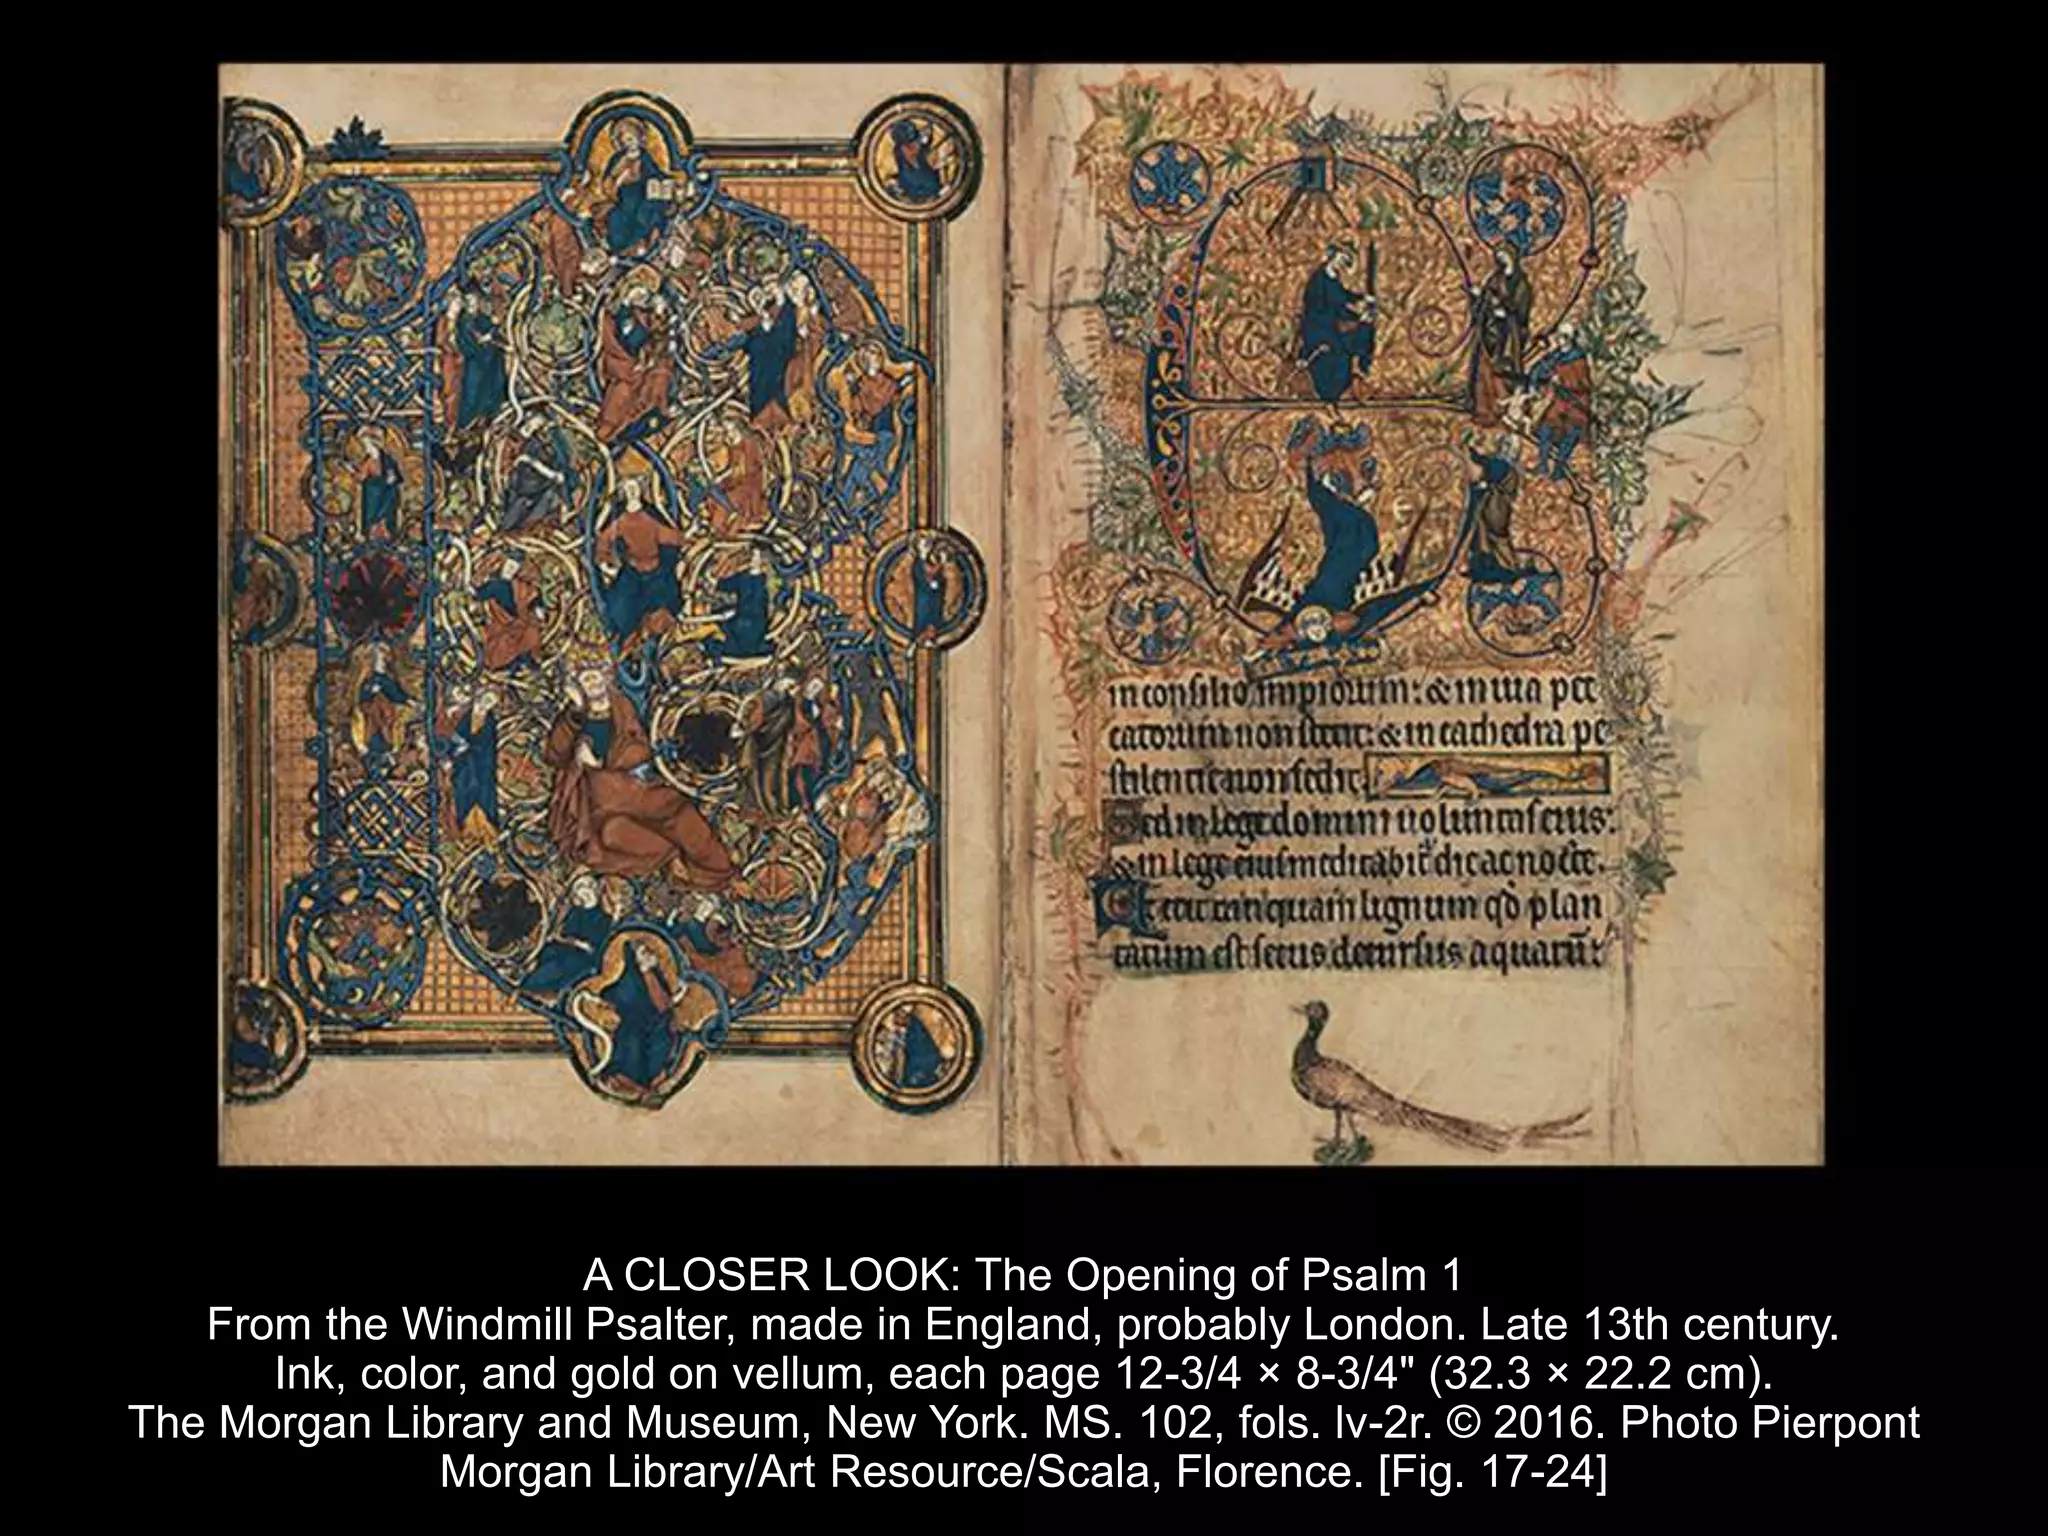 in consilio impiorum: & in uia pec
catorum non stetit: & in cathedra pe
stilencie non sedit.
Sed in lege domini uoluntas eius:
& in lege eius meditabit̉ die ac nocte.
Et erit tanquam lignum qd̉ plan
tatum est secus decursus aquarū:
A CLOSER LOOK: The Opening of Psalm 1
From the Windmill Psalter, made in England, probably London. Late 13th century.
Ink, color, and gold on vellum, each page 12-3/4 × 8-3/4" (32.3 × 22.2 cm).
The Morgan Library and Museum, New York. MS. 102, fols. lv-2r. © 2016. Photo Pierpont
Morgan Library/Art Resource/Scala, Florence. [Fig. 17-24]